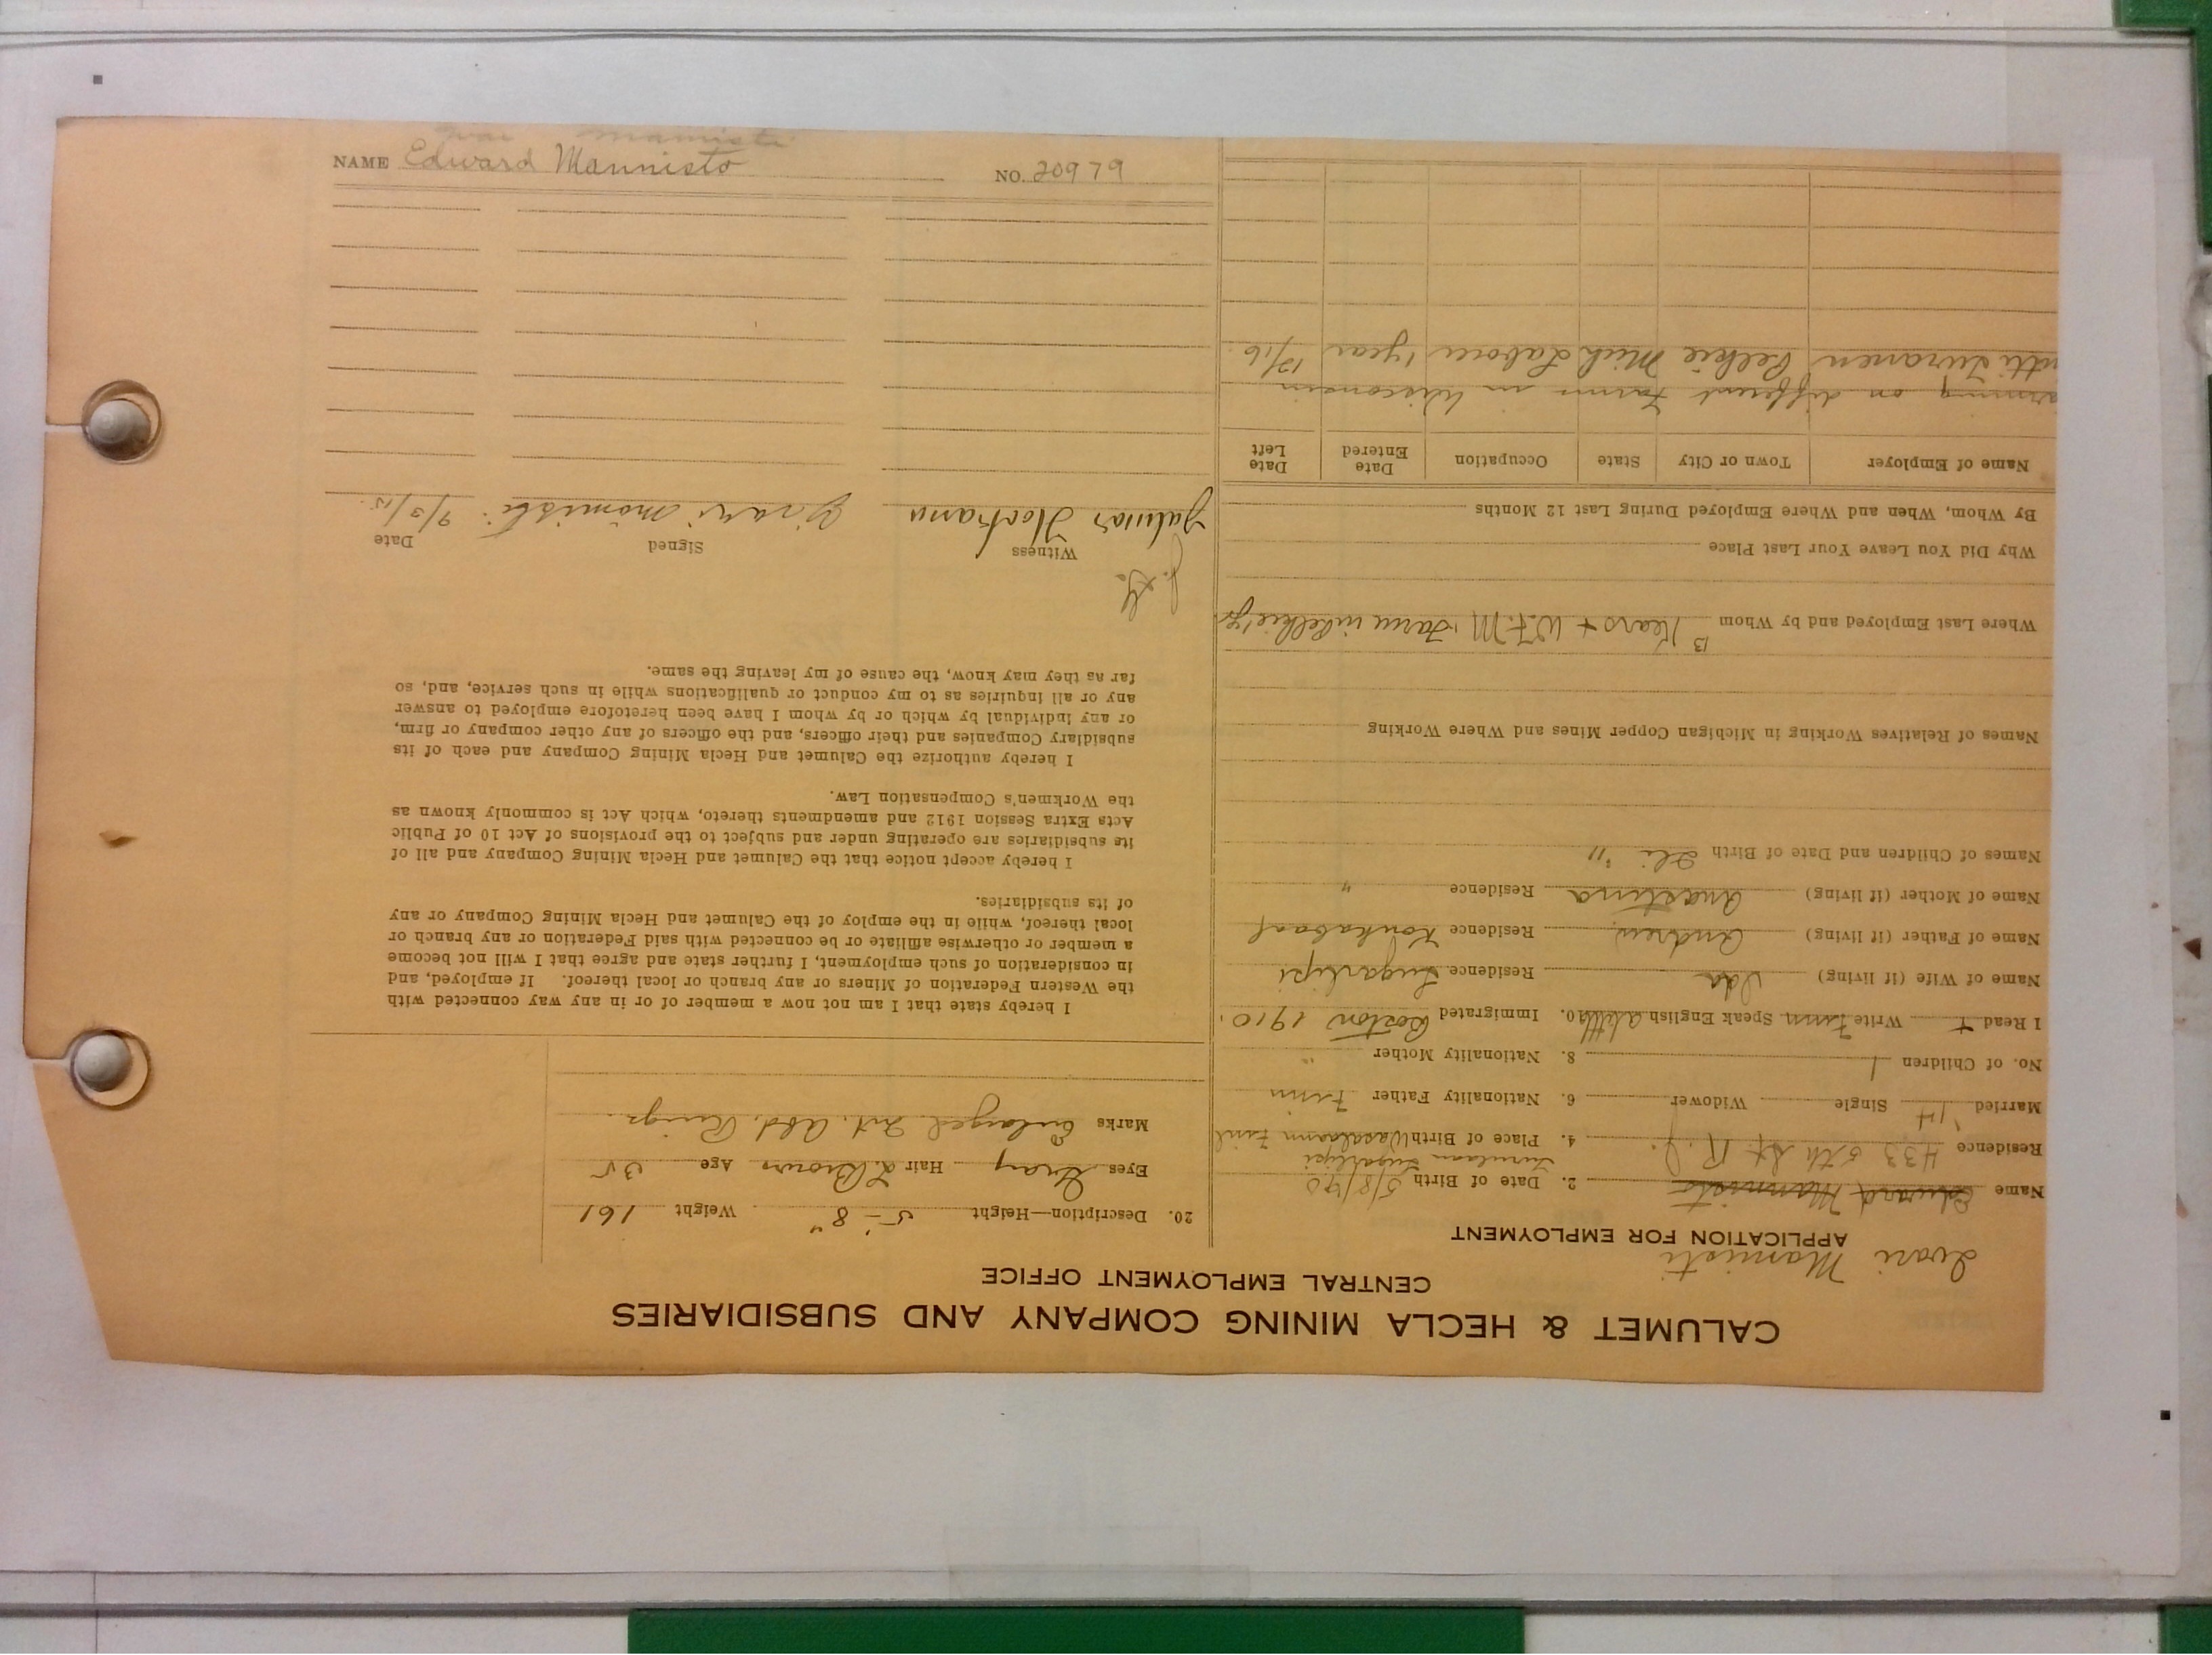 CALUMET & HECLA MINING COMPANY AND SUBSIDIARIES
CENTRAL EMPLOYMENT OFFICE
Ivari Mamisti
APPLICATION FOR EMPLOYMENT
Name Edward Mannisto 2. Date of Birth 5/8/90
Residence 433 5th St R. J. 4. Place of Birth Wasalaani Finl
Married '14 Single Widower 6. Nationality Father Finn
No. of Children 1 8. Nationality Mother "
I Read + Write Finn Speak English a little 10. Immigrated Boston 1910.
Name of Wife (if living) Ida Residence
Name of Father (if living) Andrew Residence
Name of Mother (if living) Residence "
Names of Children and Date of Birth '11
Names of Relatives Working in Michigan Copper Mines and Where Working
Where Last Employed and by Whom 13 Kears + W.F.M. Farm in Pelkie 1 yr
Why Did You Leave Your Last Place
By Whom, When and Where Employed During Last 12 Months
Name of Employer Town or City State Occupation Date Entered Date Left
arming on different Farms in Wisconsin
Pelkie Mich Labour 1 year 12/16
20. Description—Height 5-8" Weight 161
Eyes Gray Hair L. Brown Age 25
Marks Enlarged Int. Abd. Rings
I hereby state that I am not now a member of or in any way connected with
the Western Federation of Miners or any branch or local thereof. If employed, and
in consideration of such employment, I further state and agree that I will not become
a member or otherwise affiliate or be connected with said Federation or any branch or
local thereof, while in the employ of the Calumet and Hecla Mining Company or any
of its subsidiaries.
I hereby accept notice that the Calumet and Hecla Mining Company and all of
its subsidiaries are operating under and subject to the provisions of Act 10 of Public
Acts Extra Session 1912 and amendments thereto, which Act is commonly known as
the Workmen's Compensation Law.
I hereby authorize the Calumet and Hecla Mining Company and each of its
subsidiary Companies and their officers, and the officers of any other company or firm,
or any individual by which or by whom I have been heretofore employed to answer
any or all inquiries as to my conduct or qualifications while in such service, and, so
far as they may know, the cause of my leaving the same.
Witness Signed Date
9/3/15
NAME Edward Mannisto NO. 20979